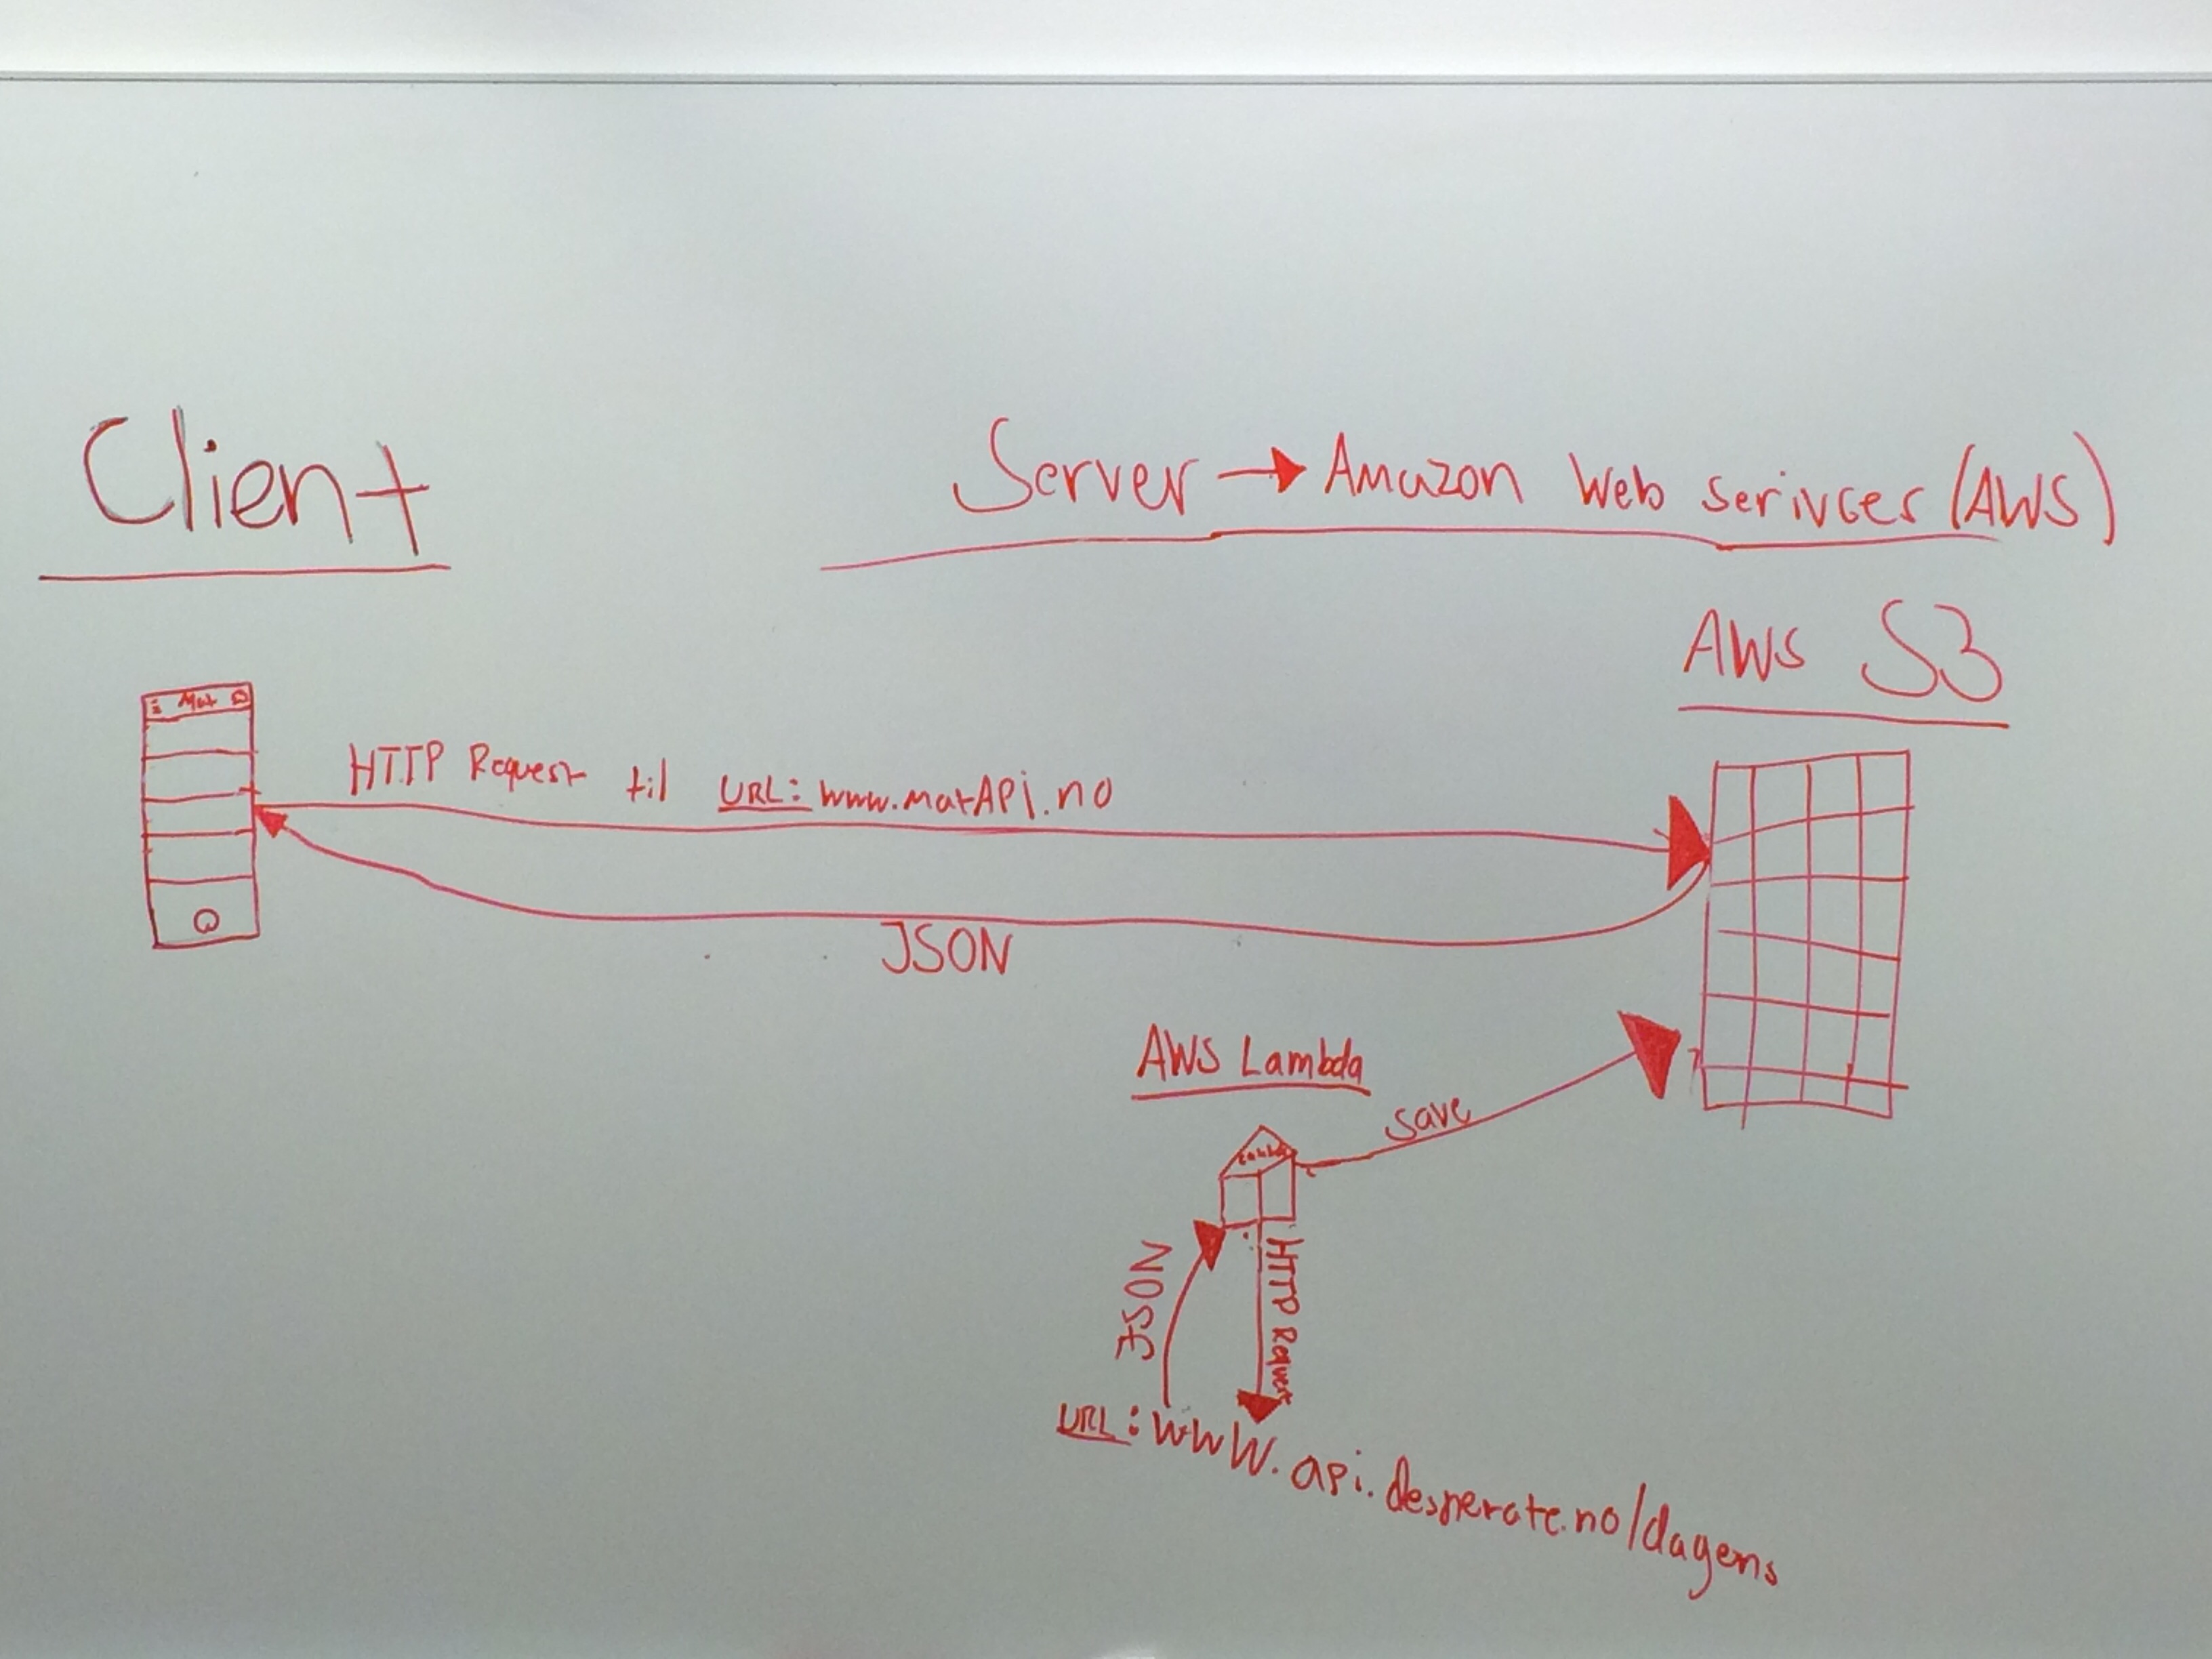 Client
Server → Amazon Web serivces (AWS)
AWS S3
Mat
HTTP Request til URL: www.matAPi.no
JSON
AWS Lambda
save
JSON
HTTP Request
URL: www.api.desperate.no/dagens